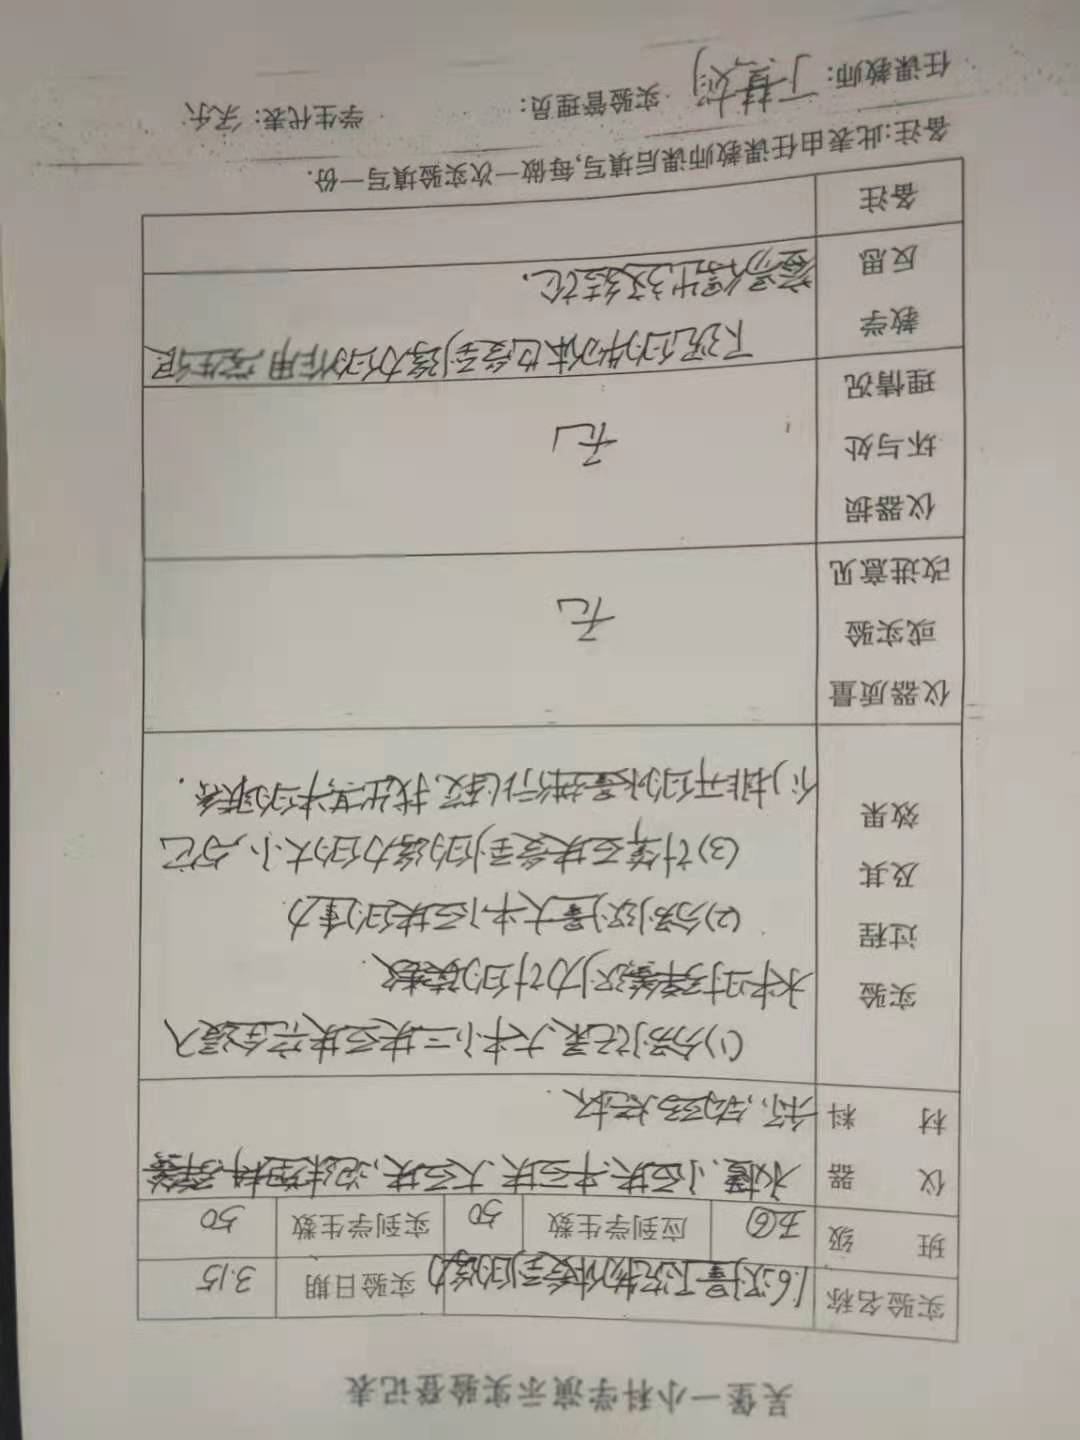 吴堡一小科学演示实验登记表
实验名称 1.6测量下沉物体受到的浮力 实验日期 3.15
班 级 五⑥ 应到学生数 50 实到学生数 50
仪 器 水槽、小石块、中石块、大石块、泡沫塑料、弹簧
材 料
实验 过程 及其 效果
(1)分别记录大中小三块石块完全浸入
水中时弹簧测力计的读数
(2)分别测量大中小石块的重力
(3)计算石块受到的浮力的大小,与它
们排开的水量进行比较,找出其中的联系.
仪器质量 或实验 改进意见 无
仪器损 坏与处 理情况 无
教学 反思 下沉的物体也受到浮力的作用,学生很
容易得出这结论.
备注
备注:此表由任课教师课后填写,每做一次实验填写一份.
任课教师: 实验管理员: 学生代表: